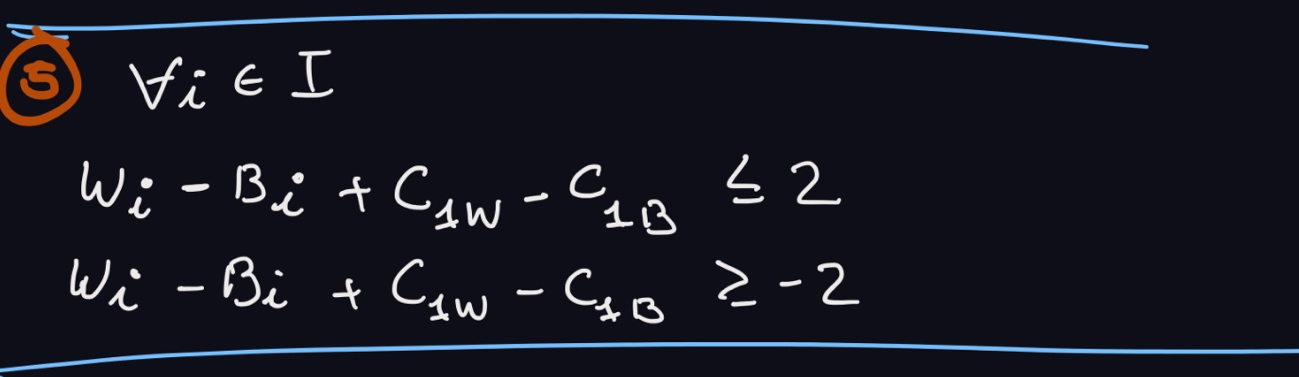 5 ∀i ∈ I
Wi - Bi + C1W - C1B ≤ 2
Wi - Bi + C1W - C1B ≥ -2